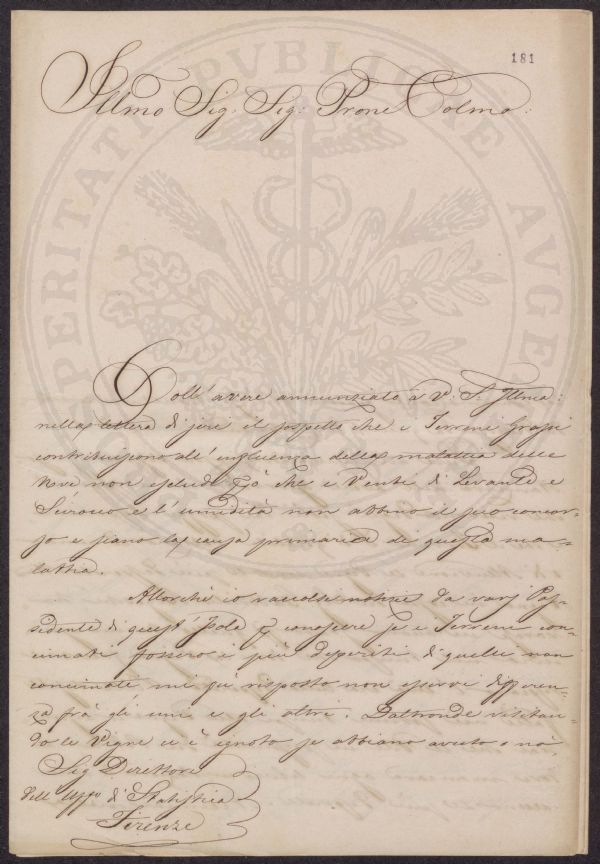 181
Illmo Sig: Sig: Prone Colmo:
PROSPERITATI PVBLICAE AVGENDAE
Coll'avere annunziato à V: S: Illma:
nella lettera di jeri il sospetto che i Terreni Grassi
contribuiscono all'influenza della malattia delle
Uve non escludo pò che i Venti di Levante e
Scirocco e l'umidità non abbino il suo concor-
so e siano la causa primaria di questa ma-
lattia.
Allorchè io raccolsi notizie da varj Pos-
sidenti di quest'Isola p conoscere se i Terreni con-
cimati fossero i più deperiti di quelli non
concimati mi fù risposto non esservi differen-
za frà gli uni e gli altri. Daltronde visitan-
do le Vigne ci è ignoto se abbiano avuto o nò,
Sig Direttore
dell'Uffo di Statistica
Firenze